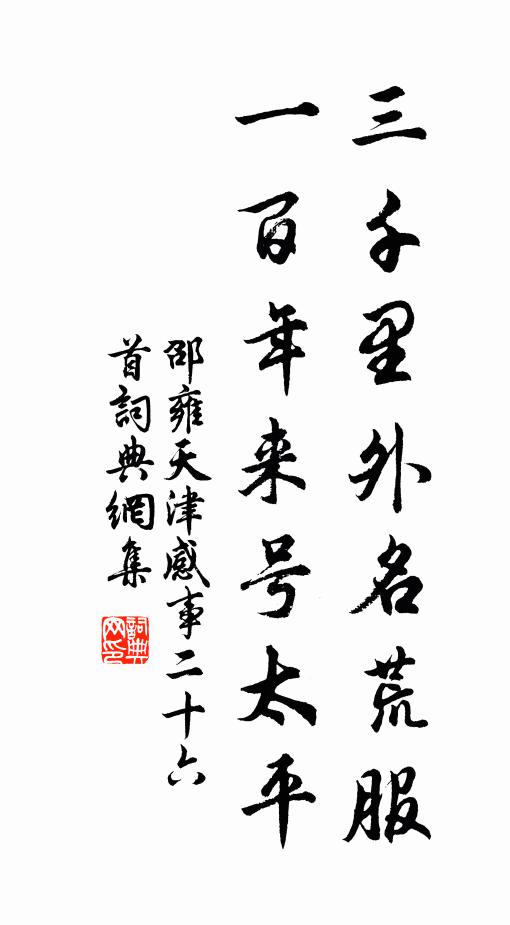 三千里外名荒服
一百年来号太平
邵雍天津感事二十六
首詞典網集
詞典
网印